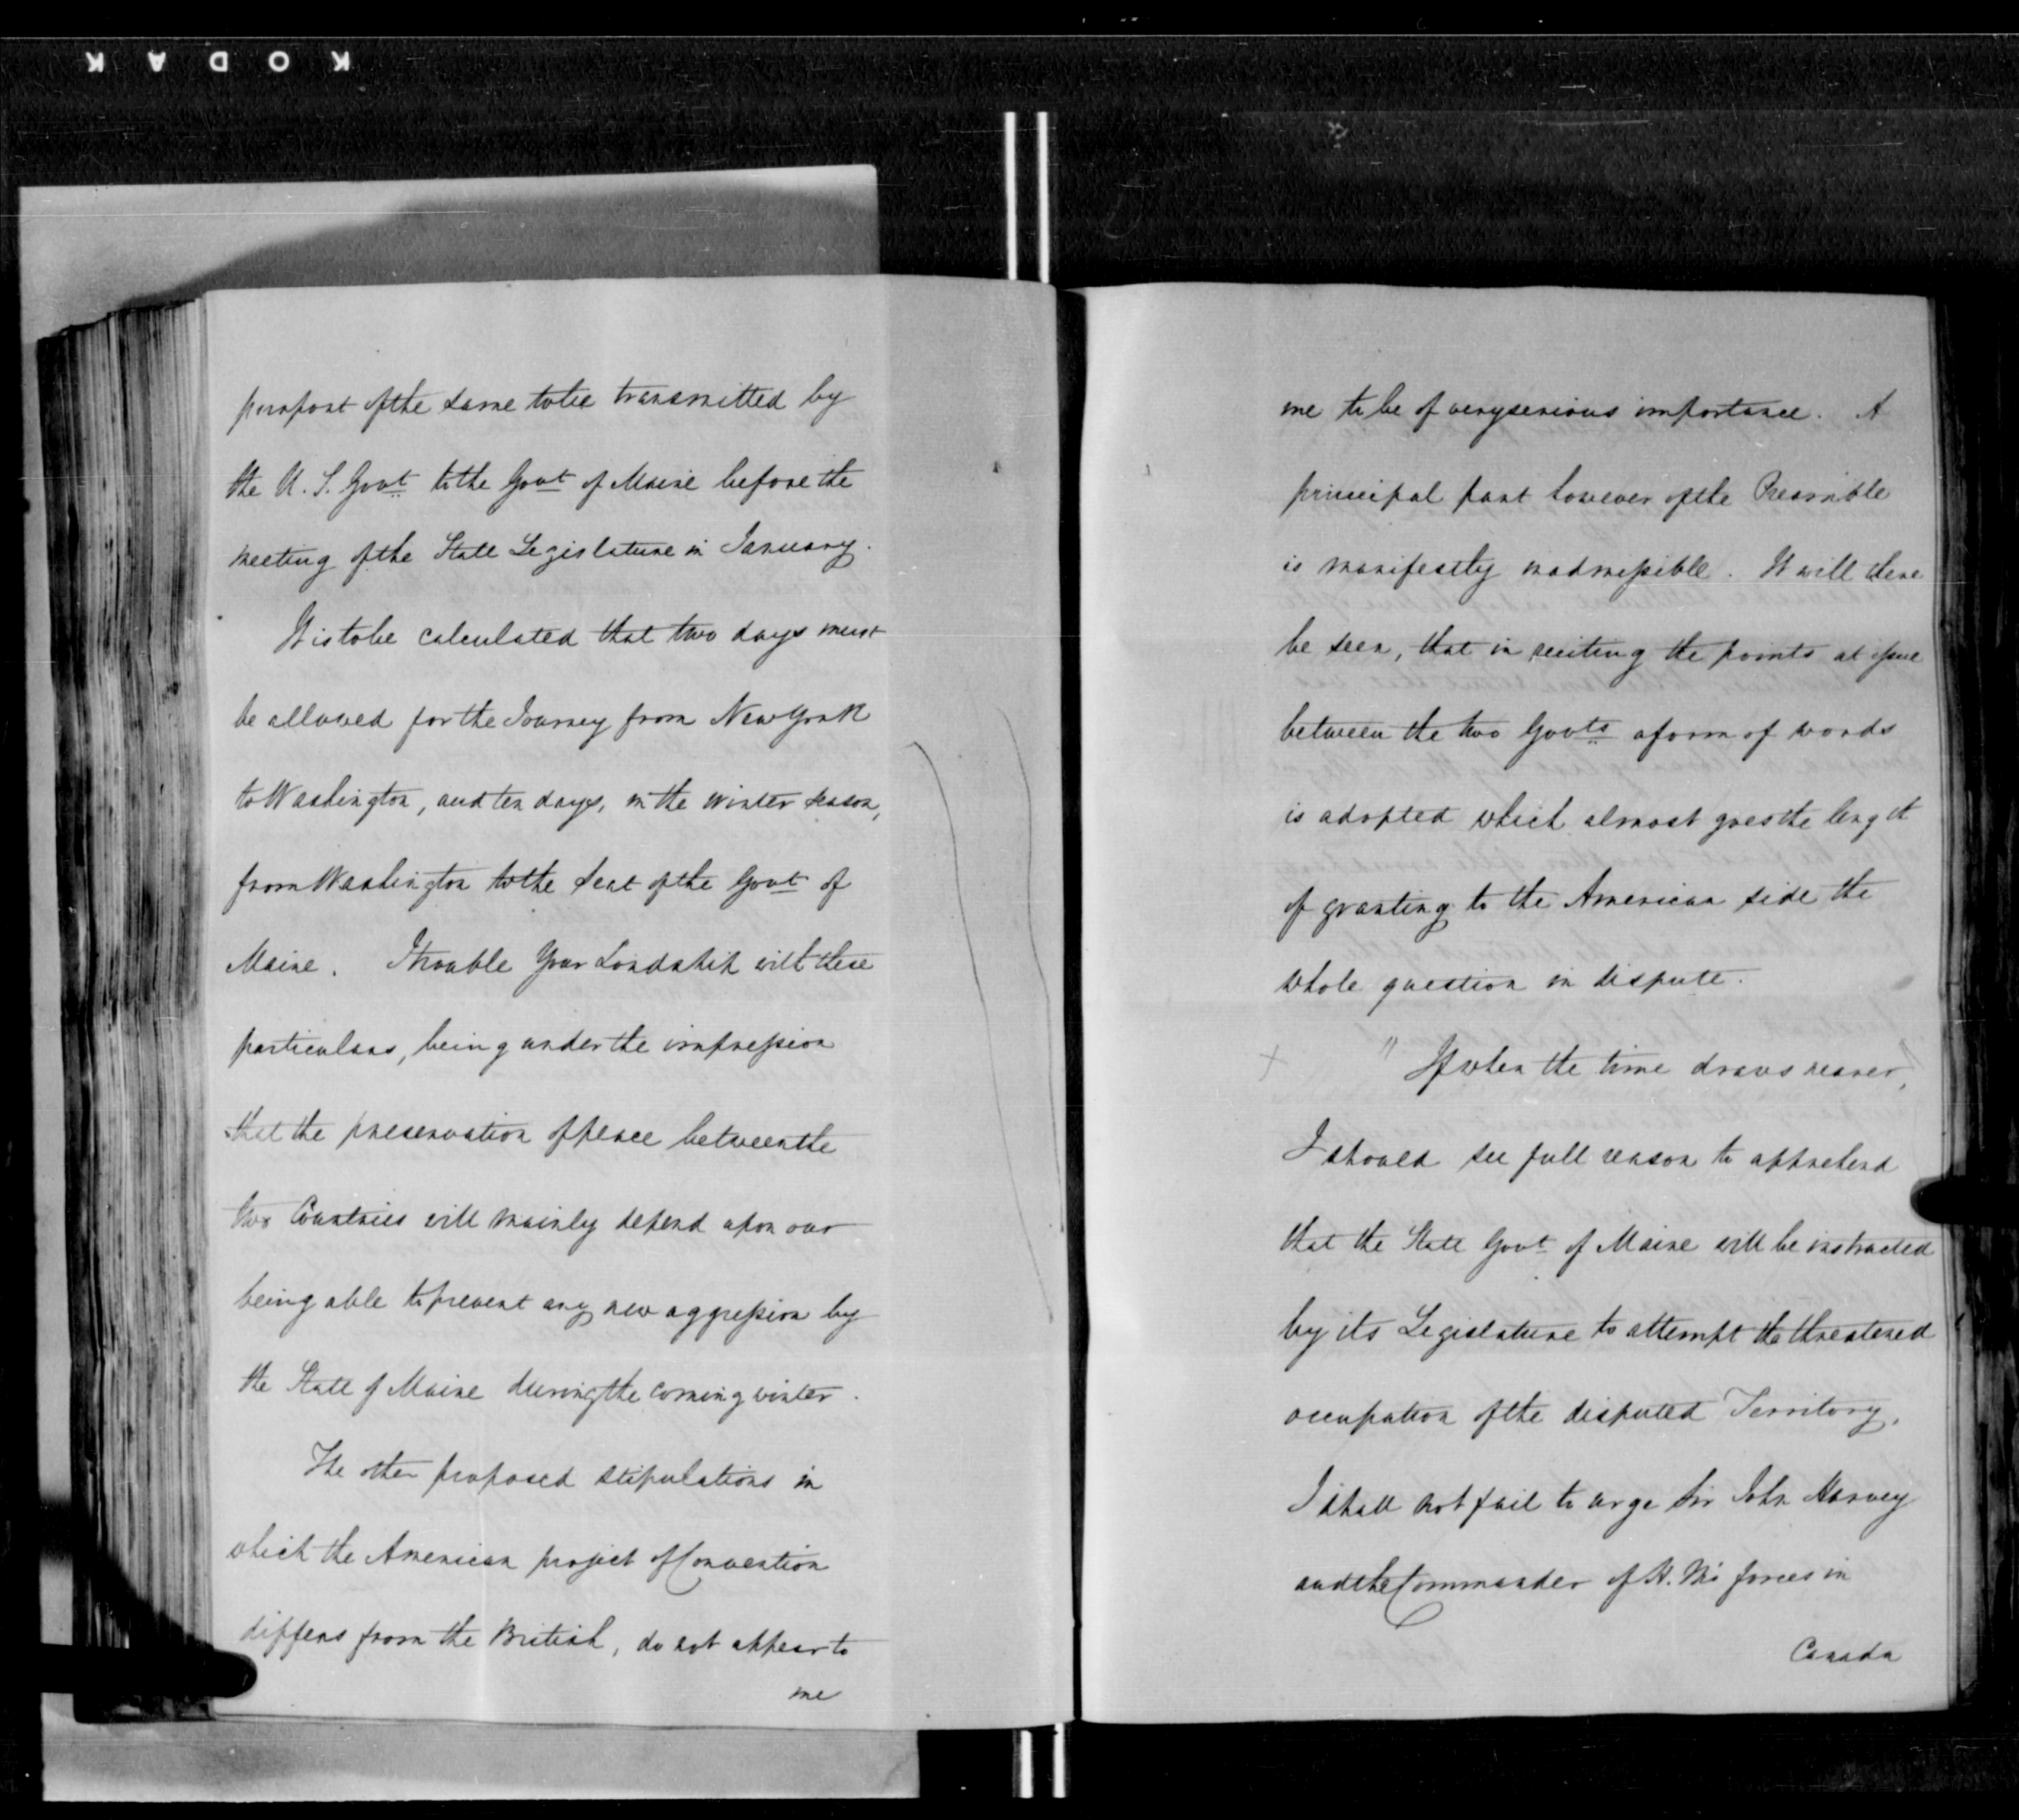 KODAK
purport of the same to be transmitted by
the U.S. Govt to the Govt of Maine before the
meeting of the State Legislature in January.
It is to be calculated that two days must
be allowed for the Journey from New York
to Washington, and ten days, in the winter season,
from Washington to the Seat of the Govt of
Maine. I trouble Your Lordship with these
particulars, being under the impression
that the preservation of peace between the
two Countries will mainly depend upon our
being able to prevent any new aggression by
the State of Maine during the coming winter.
The other proposed stipulations in
which the American project of Convention
differs from the British, do not appear to
me
me to be of very serious importance. A
principal part however of the Preamble
is manifestly inadmissible. It will there
be seen, that in reciting the points at issue
between the two Govts a form of words
is adopted which almost goes the length
of granting to the American side the
whole question in dispute.
x " If when the time draws nearer,
I should see full reason to apprehend
that the State Govt of Maine will be instructed
by its Legislature to attempt the threatened
occupation of the disputed Territory,
I shall not fail to urge Sir John Harvey
and the Commander of H. M's forces in
Canada